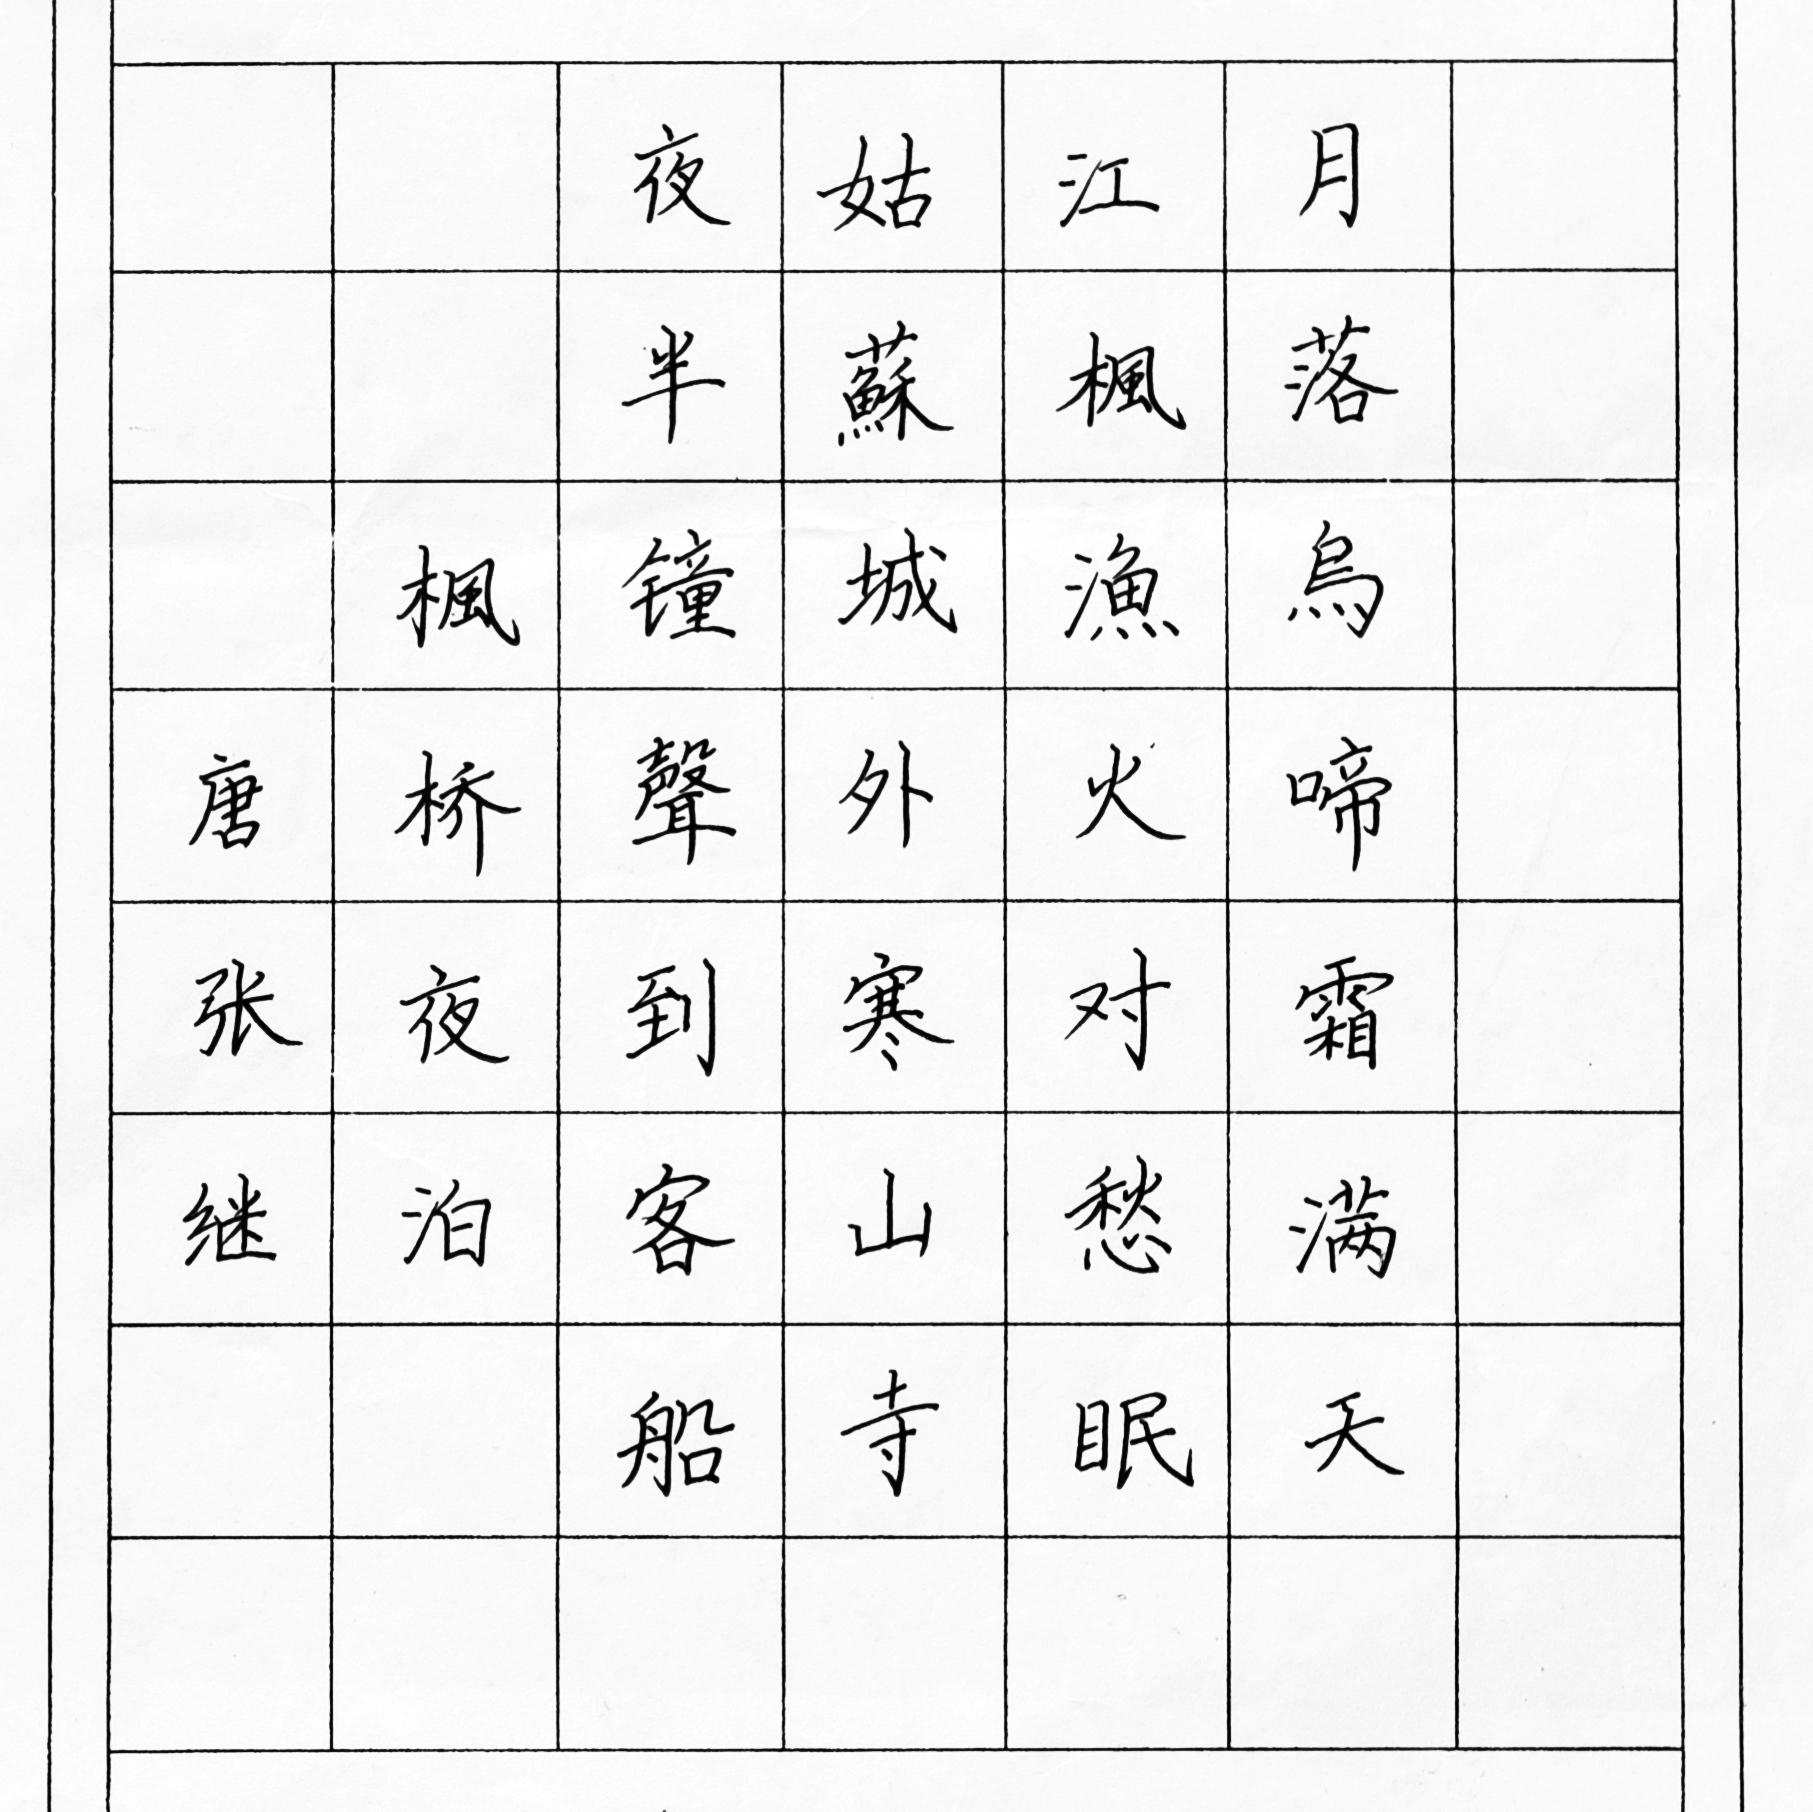 月落烏啼霜满天
江楓漁火对愁眠
姑蘇城外寒山寺
夜半鐘聲到客船
楓桥夜泊
唐张继